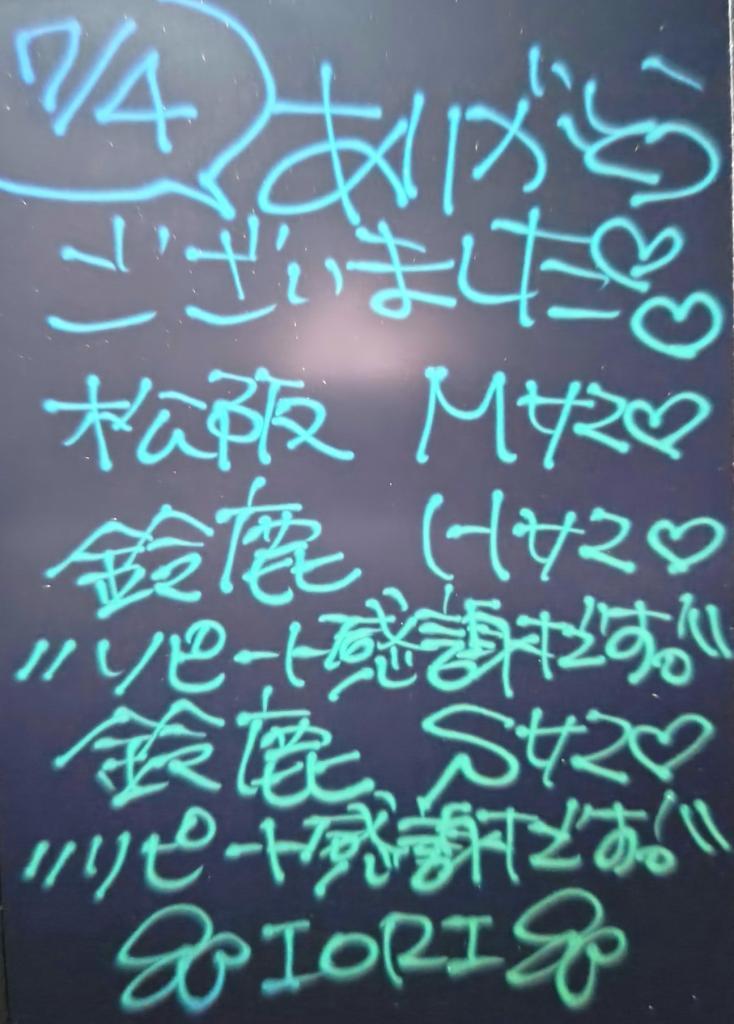 7/4 ありがとう
ございました♡♡
松阪 Mサン♡
鈴鹿 Hサン♡
〃リピート感謝です。〃
鈴鹿 Sサン♡
〃リピート感謝です。〃
IORI